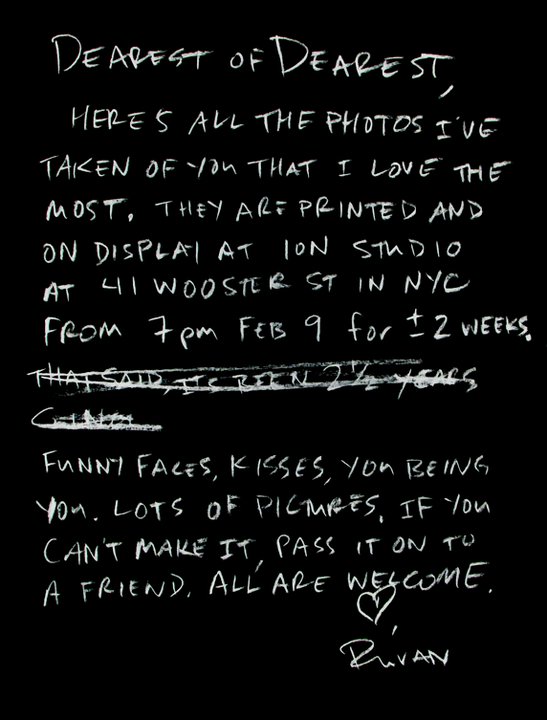 DEAREST OF DEAREST,
HERE'S ALL THE PHOTOS I'VE
TAKEN OF YOU THAT I LOVE THE
MOST. THEY ARE PRINTED AND
ON DISPLAY AT ION STUDIO
AT 41 WOOSTER ST IN NYC
FROM 7pm FEB 9 for ± 2 WEEKS.
THAT SAID, IT'S BEEN 2 1/2 YEARS
FUNNY FACES, KISSES, YOU BEING
YOU. LOTS OF PICTURES. IF YOU
CAN'T MAKE IT, PASS IT ON TO
A FRIEND. ALL ARE WELCOME.
♡,
RUVAN